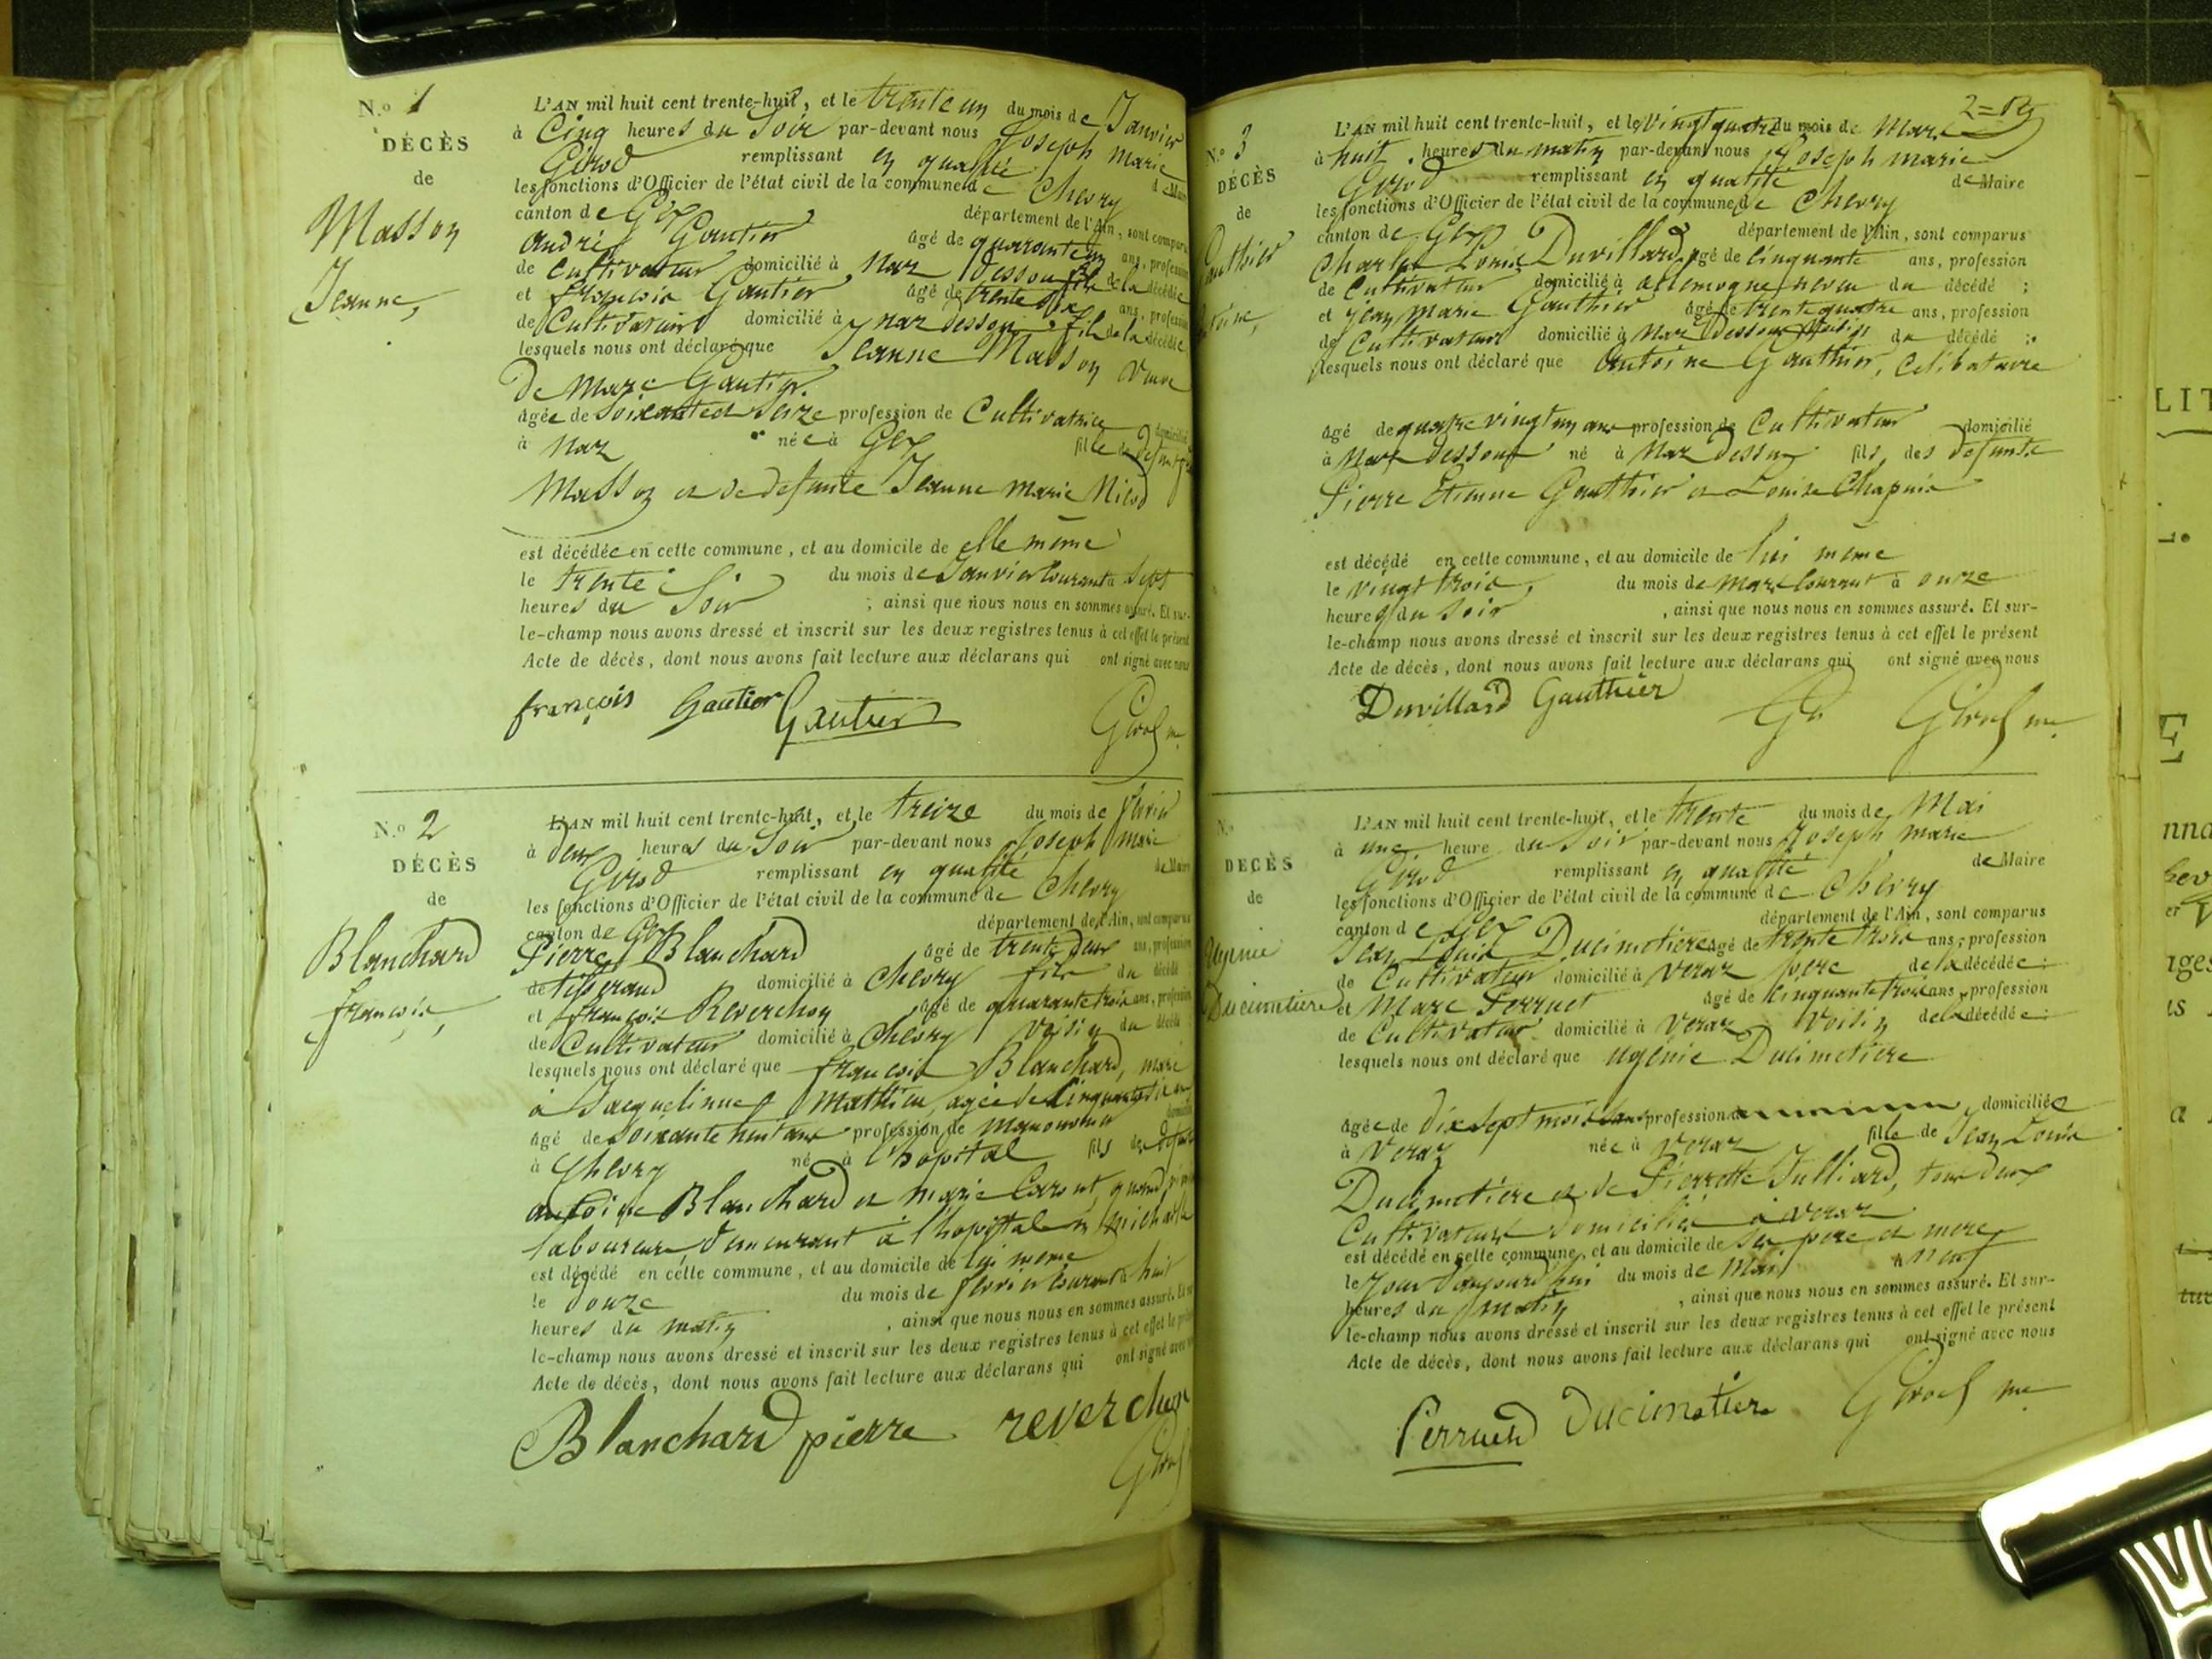 N.º 1
DÉCÈS
de
Masson
Jeanne,
L'AN mil huit cent trente-huit, et le trente un du mois de Janvier
à Cinq heures du Soir par-devant nous Joseph Marie
Girod remplissant en qualité de Maire
les fonctions d'Officier de l'état civil de la commune de Chevry
canton de Gex département de l'Ain, sont comparus
andré Gautier âgé de quarante un ans, profession
de Cultivateur domicilié à Naz dessous fils de la décédée
et françois Gautier âgé de trente six ans, profession
de Cultivateur domicilié à Naz dessous, fils de la décédée
lesquels nous ont déclaré que Jeanne Masson Veuve
De Marc Gautier.
âgée de Soixante et Seize profession de Cultivatrice domiciliée
à Naz née à Gex fille de Defunt
Masson et de defunte Jeanne Marie Nicod
est décédée en cette commune, et au domicile de elle même
le trente du mois de Janvier Courant à Sept
heures du Soir, ainsi que nous nous en sommes assuré. Et sur-
le-champ nous avons dressé et inscrit sur les deux registres tenus à cet effet le présent
Acte de décès, dont nous avons fait lecture aux déclarans qui ont signé avec nous
françois Gautier Gautier Girod m.
N.º 2
DÉCÈS
de
Blanchard
françois,
L'AN mil huit cent trente-huit, et le treize du mois de fevrier
à deux heures du Soir par-devant nous Joseph Marie
Girod remplissant en qualité de Maire
les fonctions d'Officier de l'état civil de la commune de Chevry
canton de Gex département de l'Ain, sont comparus
Pierre Blanchard âgé de trente deux ans, profession
de tisserand domicilié à Chevry fils du décédé
et françois Reverchon âgé de quarante trois ans, profession
de Cultivateur domicilié à Chevry Voisin du décédé
lesquels nous ont déclaré que françois Blanchard, marié
à Jacqueline Mathieu, agée de Cinquante six ans
âgé de Soixante huit ans profession de manouvrier domicilié
à Chevry né à l'hopital fils de defunts
antoine Blanchard et marie quand
laboureurs demeurant à l'hopital
est décédé en cette commune, et au domicile de lui même
le douze du mois de fevrier Courant à huit
heures du matin, ainsi que nous nous en sommes assuré. Et sur-
le-champ nous avons dressé et inscrit sur les deux registres tenus à cet effet le présent
Acte de décès, dont nous avons fait lecture aux déclarans qui ont signé avec nous
Blanchard pierre reverchon
Girod
N.º 3
DÉCÈS
de
Gauthier
Antoine,
L'AN mil huit cent trente-huit, et le vingt quatre du mois de Mars
à huit heures du matin par-devant nous Joseph marie
Girod remplissant en qualité de Maire
les fonctions d'Officier de l'état civil de la commune de Chevry
canton de Gex département de l'Ain, sont comparus
Charles Louis Duvillard, âgé de Cinquante ans, profession
de Cultivateur domicilié à allemogne neveu du décédé ;
et jean marie Gauthier âgé de trente quatre ans, profession
de Cultivateur domicilié à Naz Dessous Voisin du décédé :
lesquels nous ont déclaré que Antoine Gauthier, Celibataire
âgé de quatre vingt un ans profession de Cultivateur domicilié
à Naz dessous né à Naz dessus fils des defunts
Pierre Etienne Gauthier et Louise Chapuis
est décédé en cette commune, et au domicile de lui même
le vingt trois, du mois de Mars Courant à onze
heures du Soir, ainsi que nous nous en sommes assuré. Et sur-
le-champ nous avons dressé et inscrit sur les deux registres tenus à cet effet le présent
Acte de décès, dont nous avons fait lecture aux déclarans qui ont signé avec nous
Duvillard Gauthier Girod m.
N.º
DÉCÈS
de
Ugenie
Ducimetiere
L'AN mil huit cent trente-huit, et le trente du mois de Mai
à une heure du Soir par-devant nous Joseph Marie
Girod remplissant en qualité de Maire
les fonctions d'Officier de l'état civil de la commune de Chevry
canton de Gex département de l'Ain, sont comparus
Jean Louis Ducimetiere âgé de trente trois ans, profession
de Cultivateur domicilié à Veraz père de la décédée :
et Marc Perruet âgé de Cinquante trois ans, profession
de Cultivateur domicilié à Veraz Voisin de la décédée :
lesquels nous ont déclaré que Ugénie Ducimetiere
âgée de dix Sept mois ans profession de domiciliée
à Veraz née à Veraz fille de Jean Louis
Ducimetiere et de Pierrette Julliard, tous deux
Cultivateurs Domiciliés à Veraz
est décédé en cette commune, et au domicile de Ses père et mere
le Jour d'aujourd'hui du mois de Mai à neuf
heures du matin, ainsi que nous nous en sommes assuré. Et sur-
le-champ nous avons dressé et inscrit sur les deux registres tenus à cet effet le présent
Acte de décès, dont nous avons fait lecture aux déclarans qui ont signé avec nous
Ducimetiere Girod m.